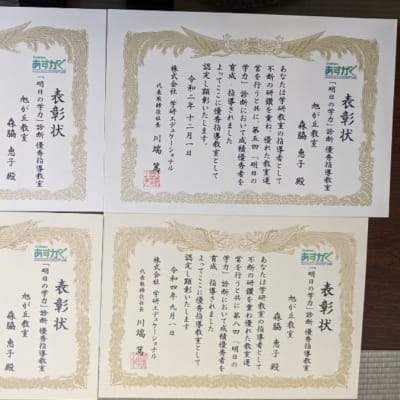 あすがく
表彰状
「明日の学力」診断 優秀指導教室
旭が丘教室
森脇 恵子 殿
あすがく
表彰状
「明日の学力」診断 優秀指導教室
旭が丘教室
森脇 恵子 殿
あなたは学研教室の指導者として
不断の研鑽を重ね、優れた教室運
営を行うと共に、第五回「明日の
学力」診断において成績優秀者を
育成、指導されました
よってここに優秀指導教室として
認定し顕彰いたします。
令和二年十二月一日
株式会社 学研エデュケーショナル
代表取締役社長 川端 篤
あすがく
表彰状
「明日の学力」診断 優秀指導教室
旭が丘教室
森脇 恵子 殿
あすがく
表彰状
「明日の学力」診断 優秀指導教室
旭が丘教室
森脇 恵子 殿
あなたは学研教室の指導者として
不断の研鑽を重ね優れた教室運
営を行うと共に第八回「明日の
学力」診断において成績優秀者を
育成 指導されました
よってここに優秀指導教室として
認定し顕彰いたします
令和四年九月一日
株式会社 学研エデュケーショナル
代表取締役社長 川端 篤